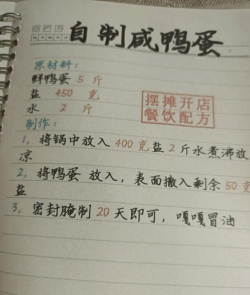 自制咸鸭蛋:
原材料:
鲜鸭蛋 5 斤
盐 450 克
水 2 斤
摆摊开店
餐饮配方
制作:
1、将锅中放入 400 克盐 2 斤水煮沸放
凉
2、将鸭蛋 放入，表面撒入剩余 50 克
盐
3、密封腌制 20 天即可，嘎嘎冒油